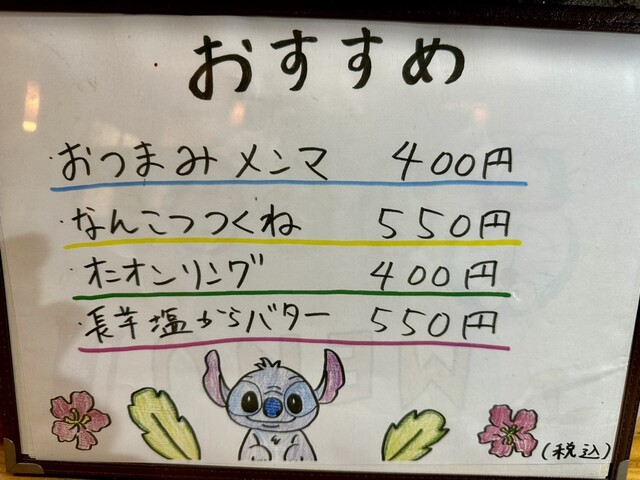 おすすめ
・おつまみメンマ 400円
・なんこつつくね 550円
・オニオンリング 400円
・長芋塩からバター 550円
(税込)